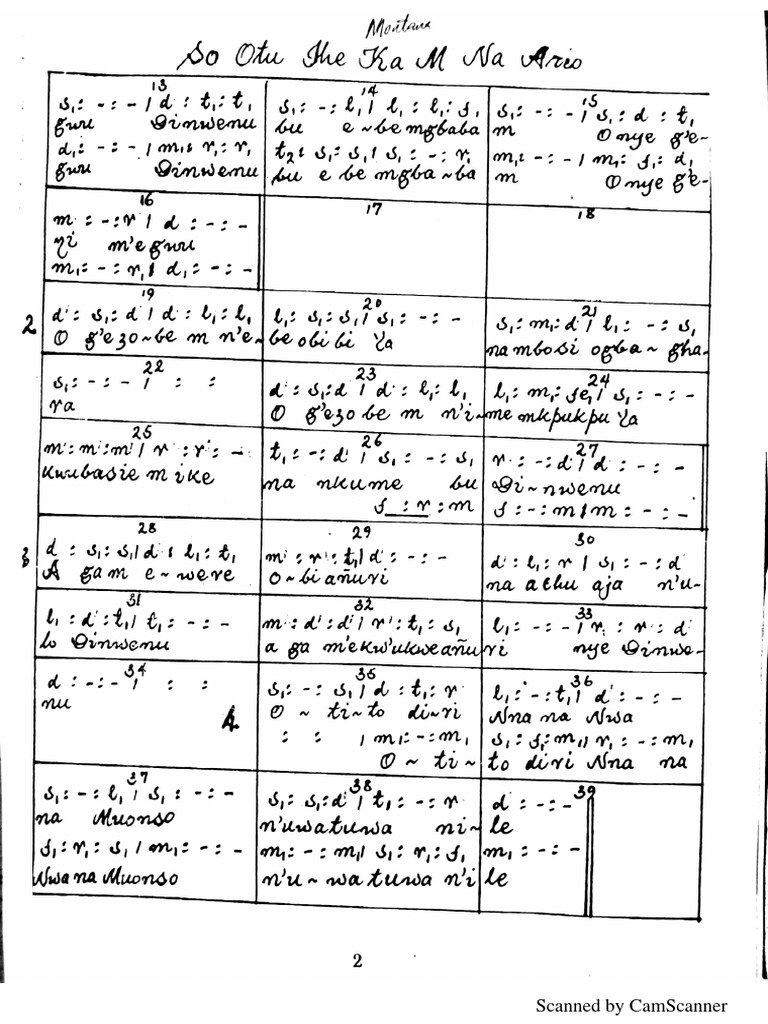 Montana
So Otu Ihe Ka M Na Arịo
13
s₁ : - : - / d : t₁ : t₁
guru Dinwenu
d₁ : - : - / m₁ : r₁ : r₁
guru Dinwenu
14
s₁ : - : l₁ / l₁ : l₁ : s₁
bu e ~ be mgbaba
t₂ : s₁ : s₁ / s₁ : - : r₁
bu e be mgba ~ ba
15
s₁ : - : - / s₁ : d : t₁
m Onye g'e-
m₁ : - : - / m₁ : s₁ : d₁
m Onye ge-
16
m : - : r / d : - : -
zi m'eguru
m₁ : - : r₁ / d₁ : - : -
17
18
2
19
d : s₁ : d / d : l₁ : l₁
O g'ezo ~ be m n'e ~
20
l₁ : s₁ : s₁ / s₁ : - : -
be obi bi Ya
21
s₁ : m₁ : d / l₁ : - : s₁
na mbosi ogba ~ gha-
22
s₁ : - : - / : :
ra
23
d : s₁ : d / d : l₁ : l₁
O g'ezo be m n'i ~
24
l₁ : m₁ : se₁ / s₁ : - : -
me mkpukpu Ya
25
m : m : m / r : r : -
Kwubasie m ike
26
t₁ : - : d / s₁ : - : s₁
na nkume bu
s : r : m
27
r : - : d / d : - : -
Di ~ nwenu
s : - : m / m : - : -
3
28
d : s₁ : s₁ / d : l₁ : t₁
A gam e ~ were
29
m : r : t₁ / d : - : -
O ~ bi añuri
30
d : l₁ : r / s₁ : - : d
na achu aja n'u-
31
l₁ : d : t₁ / t₁ : - : -
lo Dinwenu
32
m : d : d / r : t₁ : s₁
a ga m'ekw'ukwe añu
33
l₁ : - : - / r : r : d
ri nye Dinwe-
34
d : - : - / : :
nu
4.
35
s₁ : - : s₁ / d : t₁ : r
O ~ ti ~ to di ~ ri
: : / m₁ : - : m₁
O ~ ti ~
36
l₁ : - : t₁ / d : - : -
Nna na Nwa
s₁ : s₁ : m₁ / r₁ : - : m₁
to diri Nna na
37
s₁ : - : l₁ / s₁ : - : -
na Muonso
s₁ : r₁ : s₁ / m₁ : - : -
Nwa na Muonso
38
s₁ : s₁ : d / t₁ : - : r
n'uwatuwa ni ~
m₁ : - : m₁ / s₁ : r₁ : s₁
n'u ~ wa tuwa n'i
39
d : - : -
le
m₁ : - : -
le
2
Scanned by CamScanner